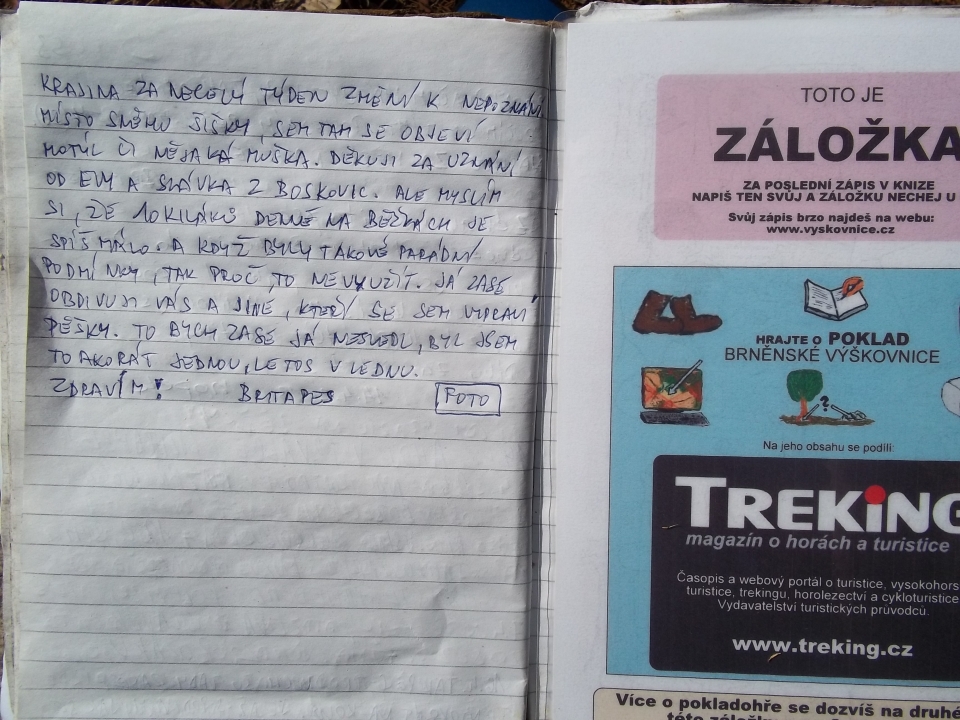 KRAJINA ZA NECELÝ TÝDEN ZMĚNÍ K NEPOZNÁNÍ
MÍSTO SNĚHU ŠIŠKY, SEM TAM SE OBJEVÍ
MOTÝL ČI NĚJAKÁ MUŠKA. DĚKUJI ZA UZNÁNÍ
OD EVY A SLÁVKA Z BOSKOVIC. ALE MYSLÍM
SI, ŽE 10 KILÁKŮ DENNĚ NA BĚŽKÁCH JE
SPÍŠ MÁLO. A KDYŽ BYLY TAKOVÉ PARÁDNÍ
PODMÍNKY, TAK PROČ TO NEVYUŽÍT. JÁ ZASE
OBDIVUJI VÁS A JINÉ, KTEŘÍ SE SEM VYPRAVÍ
PĚŠKY. TO BYCH ZASE JÁ NESVEDL, BYL JSEM
TO AKORÁT JEDNOU, LETOS V LEDNU.
ZDRAVÍM! BRITAPES FOTO
TOTO JE
ZÁLOŽKA
ZA POSLEDNÍ ZÁPIS V KNIZE
NAPIŠ TEN SVŮJ A ZÁLOŽKU NECHEJ U
Svůj zápis brzo najdeš na webu:
www.vyskovnice.cz
HRAJTE O POKLAD
BRNĚNSKÉ VÝŠKOVNICE
?
Na jeho obsahu se podíli:
TREKING
magazín o horách a turistice
Časopis a webový portál o turistice, vysokohors
turistice, trekingu, horolezectví a cykloturistice
Vydavatelství turistických průvodců.
www.treking.cz
Více o pokladohře se dozvíš na druhé
této záložky